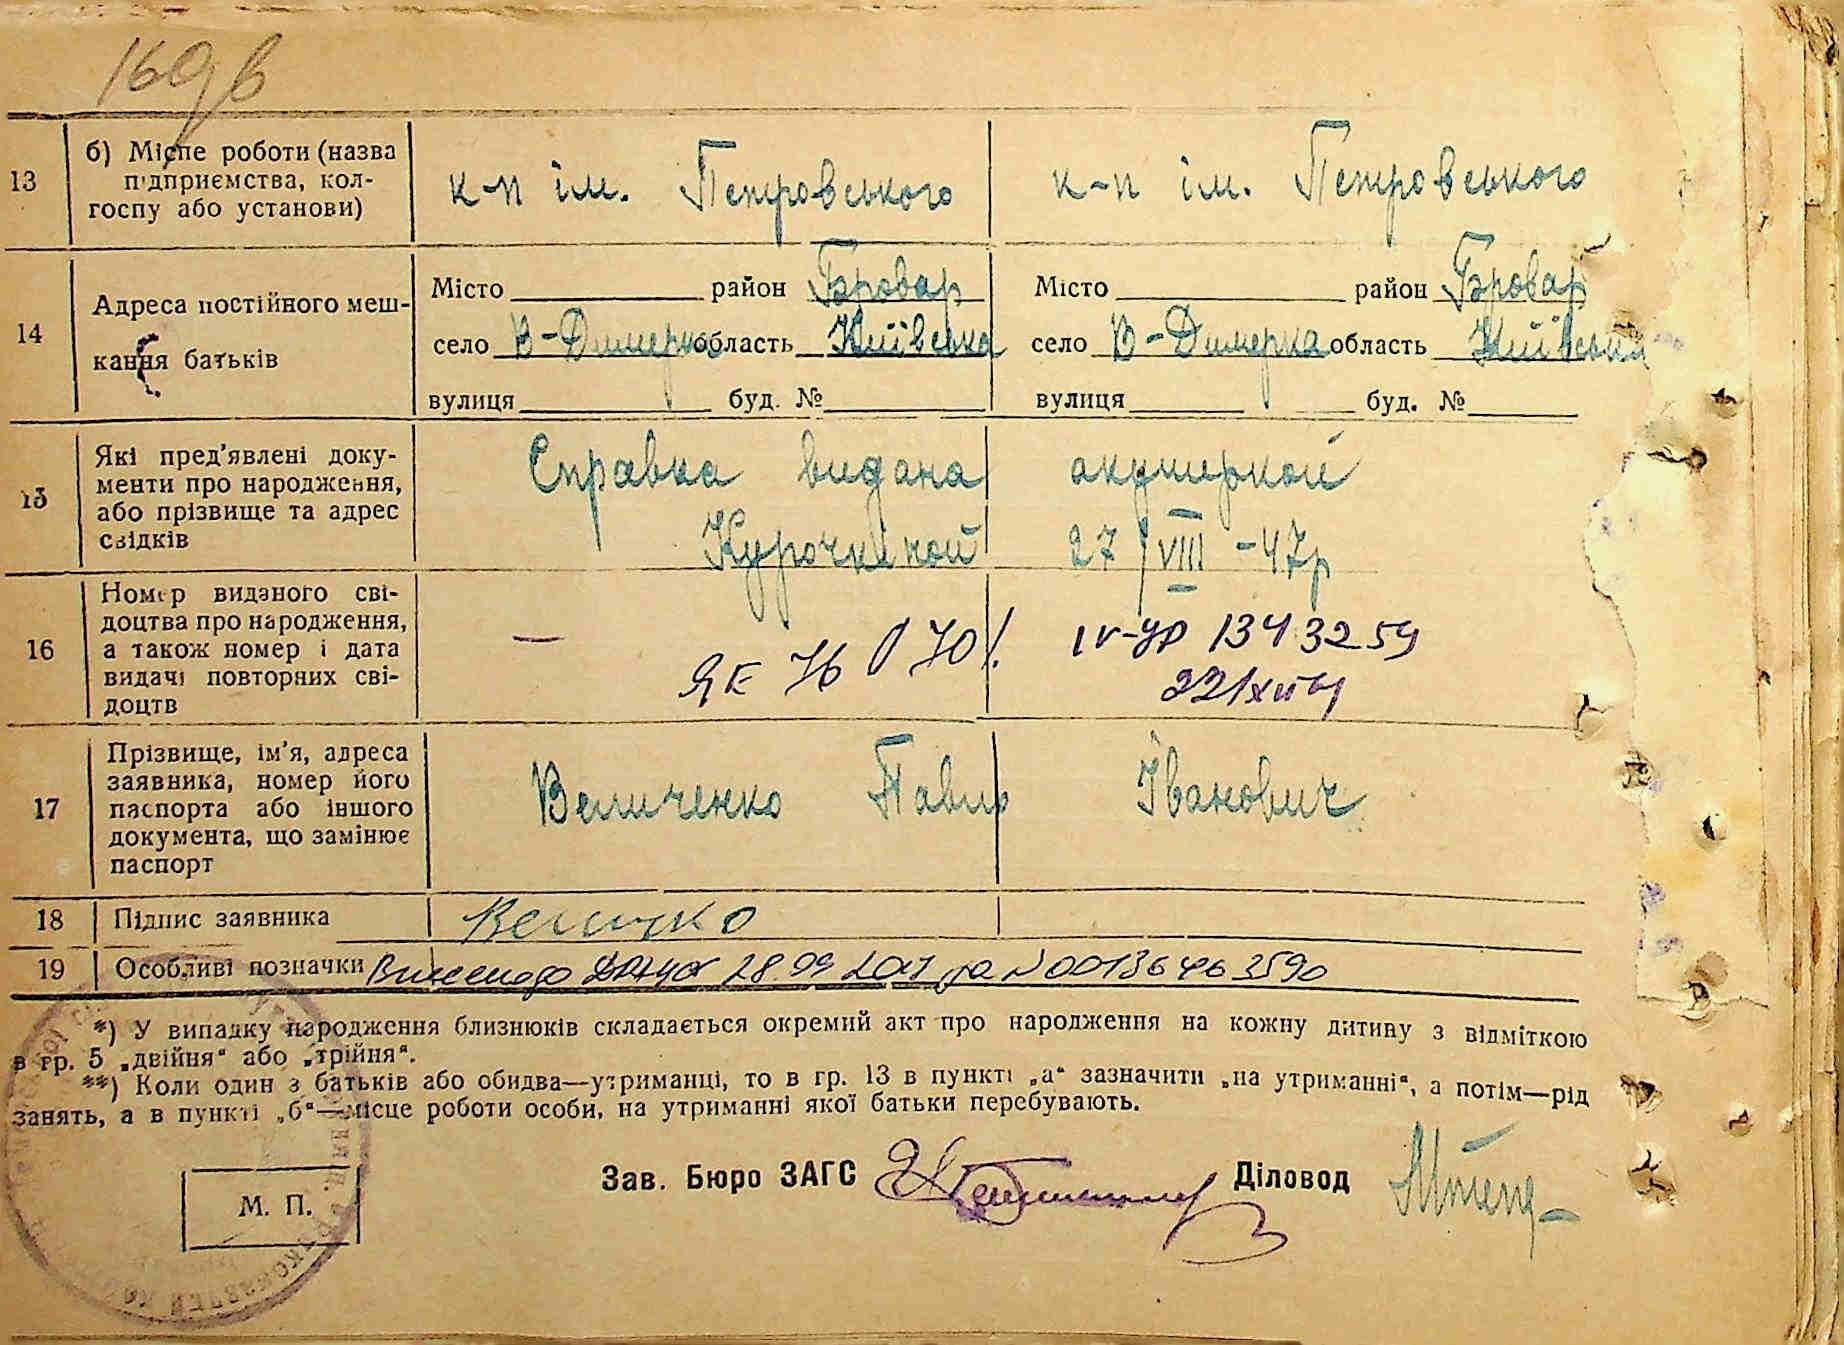 169 в
13
б) Місце роботи (назва
підприємства, кол-
госпу або установи)
к-п ім. Петровського
к-п ім. Петровського
14
Адреса постійного меш-
кання батьків
Місто район Бровар
село В-Димерка область Київська
вулиця буд. №
Місто район Бровар
село В-Димерка область Київська
вулиця буд. №
15
Які пред'явлені доку-
менти про народження,
або прізвище та адрес
свідків
Справка видана акушеркой
Курочкиной 27/VIII-47р
16
Номер виданого сві-
доцтва про народження,
а також номер і дата
видачі повторних сві-
доцтв
—
ЯЕ 76
IV-УР 1343259
17
Прізвище, ім'я, адреса
заявника, номер його
паспорта або іншого
документа, що замінює
паспорт
Величенко Павло Іванович
18
Підпис заявника
19
Особливі позначки
ДРАЦС 28.09.2017 за N 00136463590
*) У випадку народження близнюків складається окремий акт про народження на кожну дитину з відміткою
в гр. 5 „двійня“ або „трійня“.
**) Коли один з батьків або обидва—утриманці, то в гр. 13 в пункті „а“ зазначити „на утриманні“, а потім—рід
занять, а в пункті „б“—місце роботи особи, на утриманні якої батьки перебувають.
Зав. Бюро ЗАГС
Діловод
М. П.